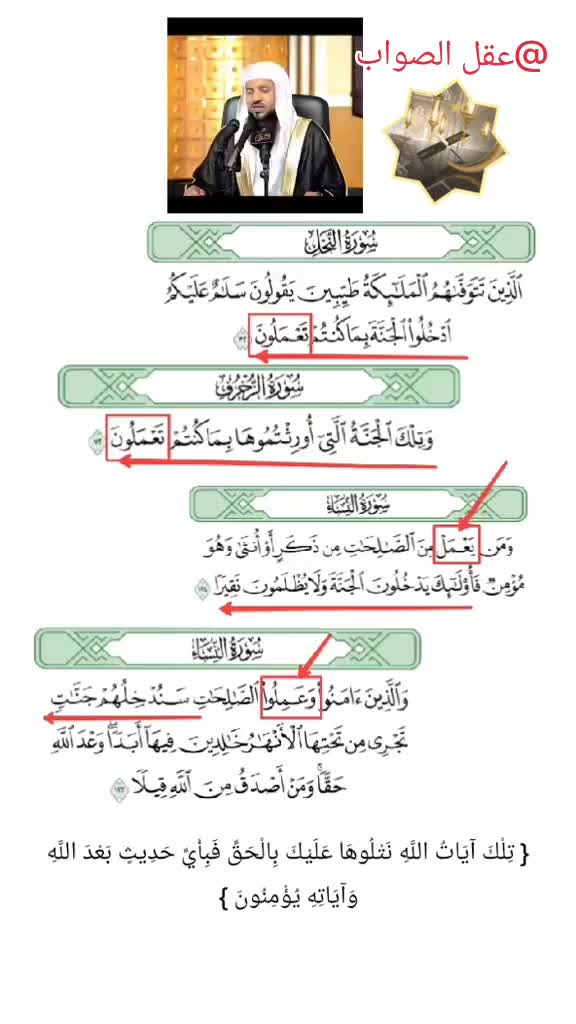 @عقل الصواب
سُورَةُ النَّحْلِ
ٱلَّذِينَ تَتَوَفَّىٰهُمُ ٱلْمَلَـٰٓئِكَةُ طَيِّبِينَ يَقُولُونَ سَلَـٰمٌ عَلَيْكُمُ
ٱدْخُلُوا۟ ٱلْجَنَّةَ بِمَا كُنتُمْ تَعْمَلُونَ ٣٢
سُورَةُ الزُّخْرُفِ
وَتِلْكَ ٱلْجَنَّةُ ٱلَّتِىٓ أُورِثْتُمُوهَا بِمَا كُنتُمْ تَعْمَلُونَ ٧٢
سُورَةُ النِّسَاءِ
وَمَن يَعْمَلْ مِنَ ٱلصَّـٰلِحَـٰتِ مِن ذَكَرٍ أَوْ أُنثَىٰ وَهُوَ
مُؤْمِنٌ فَأُو۟لَـٰٓئِكَ يَدْخُلُونَ ٱلْجَنَّةَ وَلَا يُظْلَمُونَ نَقِيرًا ١٢٤
سُورَةُ النِّسَاءِ
وَٱلَّذِينَ ءَامَنُوا۟ وَعَمِلُوا۟ ٱلصَّـٰلِحَـٰتِ سَنُدْخِلُهُمْ جَنَّـٰتٍ
تَجْرِى مِن تَحْتِهَا ٱلْأَنْهَـٰرُ خَـٰلِدِينَ فِيهَآ أَبَدًا ۖ وَعْدَ ٱللَّهِ
حَقًّا ۚ وَمَنْ أَصْدَقُ مِنَ ٱللَّهِ قِيلًا ١٢٢
{ تِلْكَ آيَاتُ اللَّهِ نَتْلُوهَا عَلَيْكَ بِالْحَقِّ فَبِأَيِّ حَدِيثٍ بَعْدَ اللَّهِ
وَآيَاتِهِ يُؤْمِنُونَ }